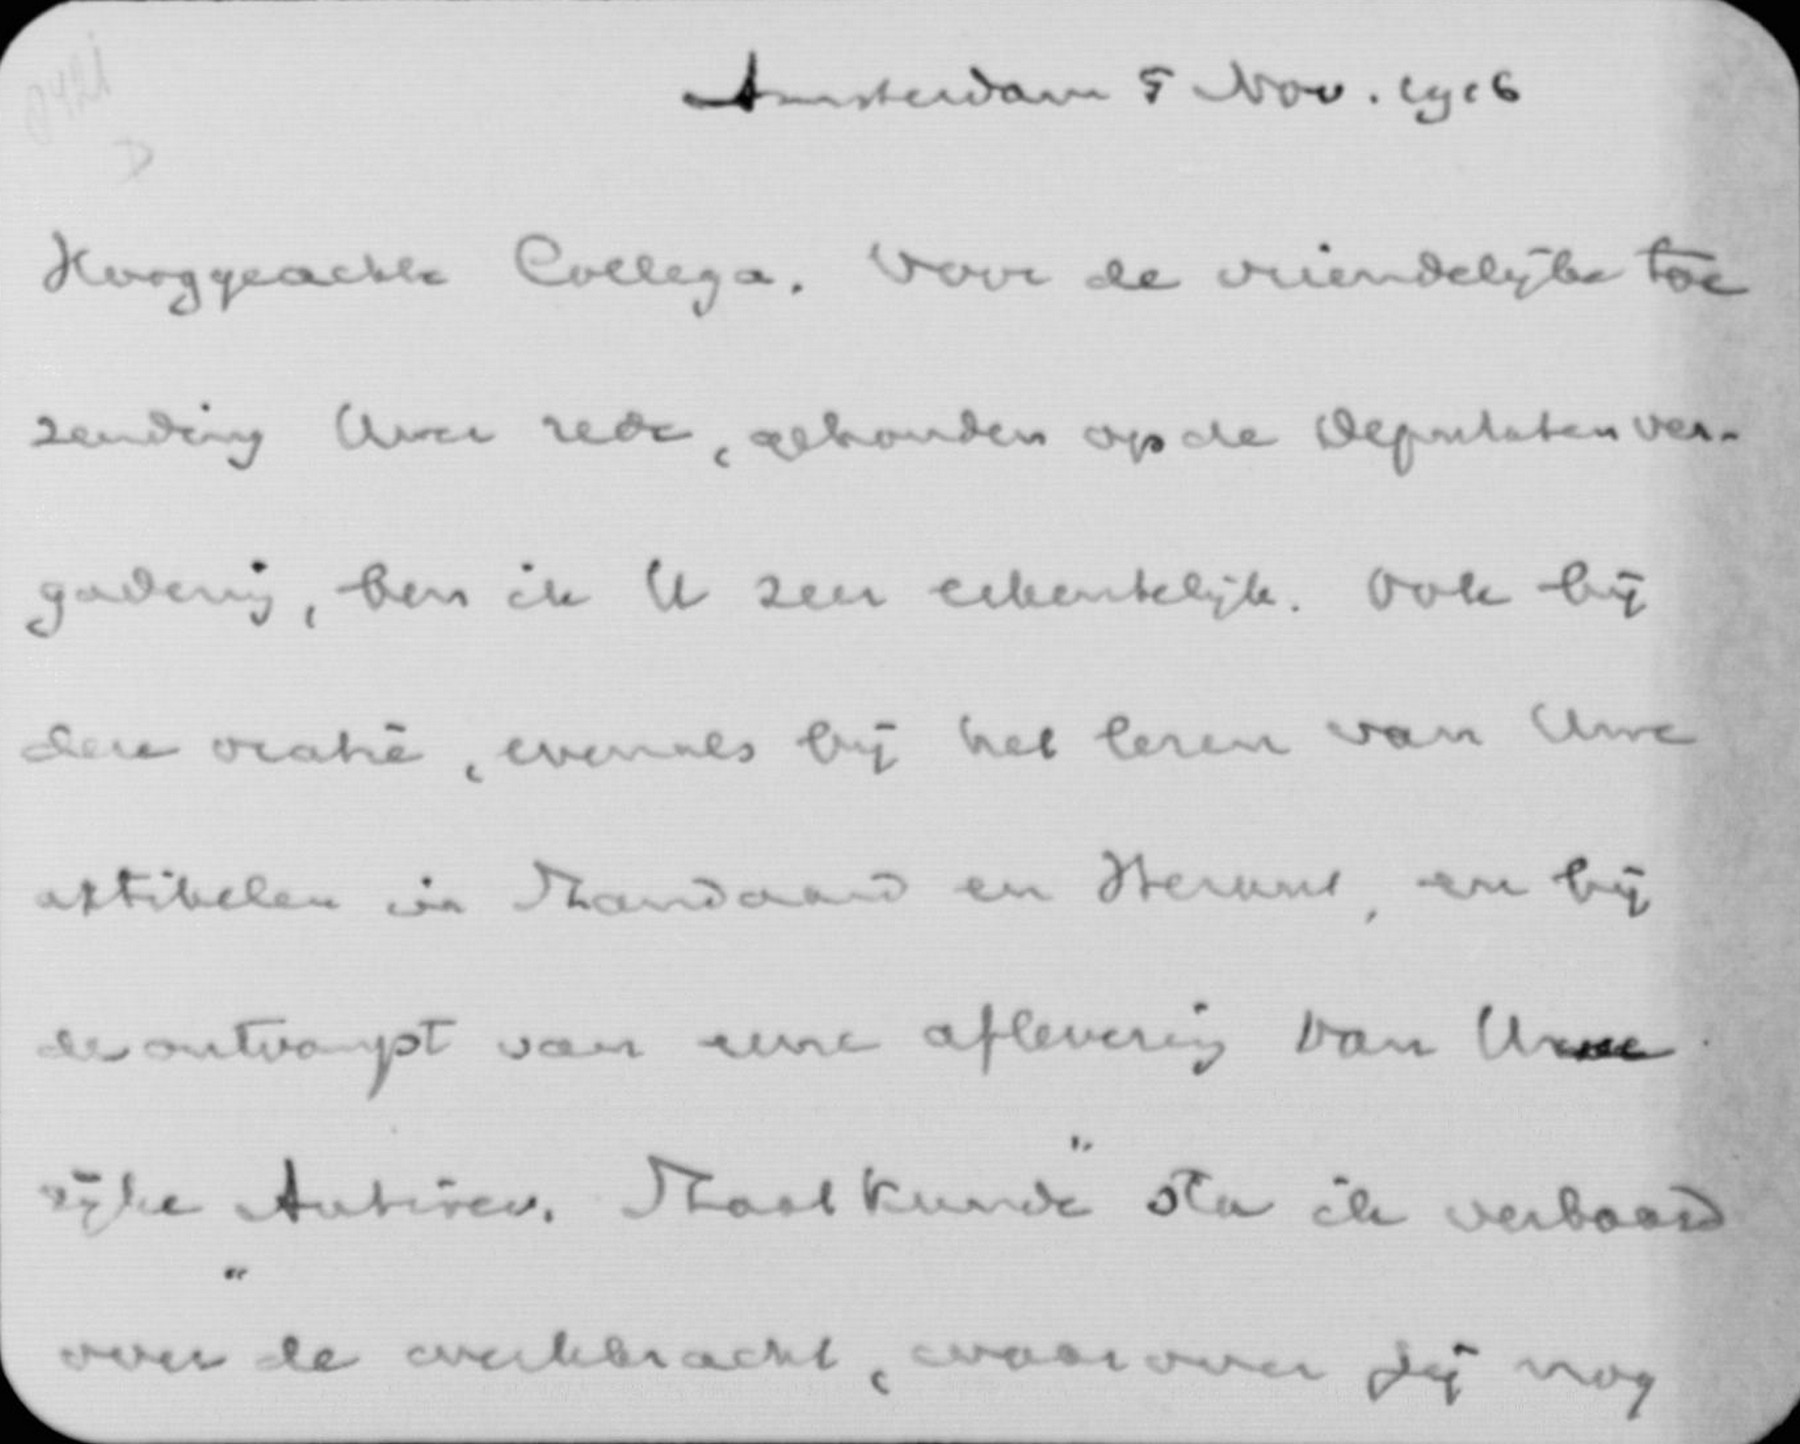 Amsterdam 5 Nov. 1916
Hooggeachte Collega. Voor de vriendelijke toe
zending Uwer rede, gehouden op de Deputaten ver-
gadering, ben ik U zeer erkentelijk. Ook bij
deze oratie, evenals bij het lezen van Uwe
artikelen in Standaard en Heraut, en bij
de ontvangst van eene aflevering van Uwe
rijke „Antirev. Staatkunde" sta ik verbaasd
over de werkkracht, waarover gij nog